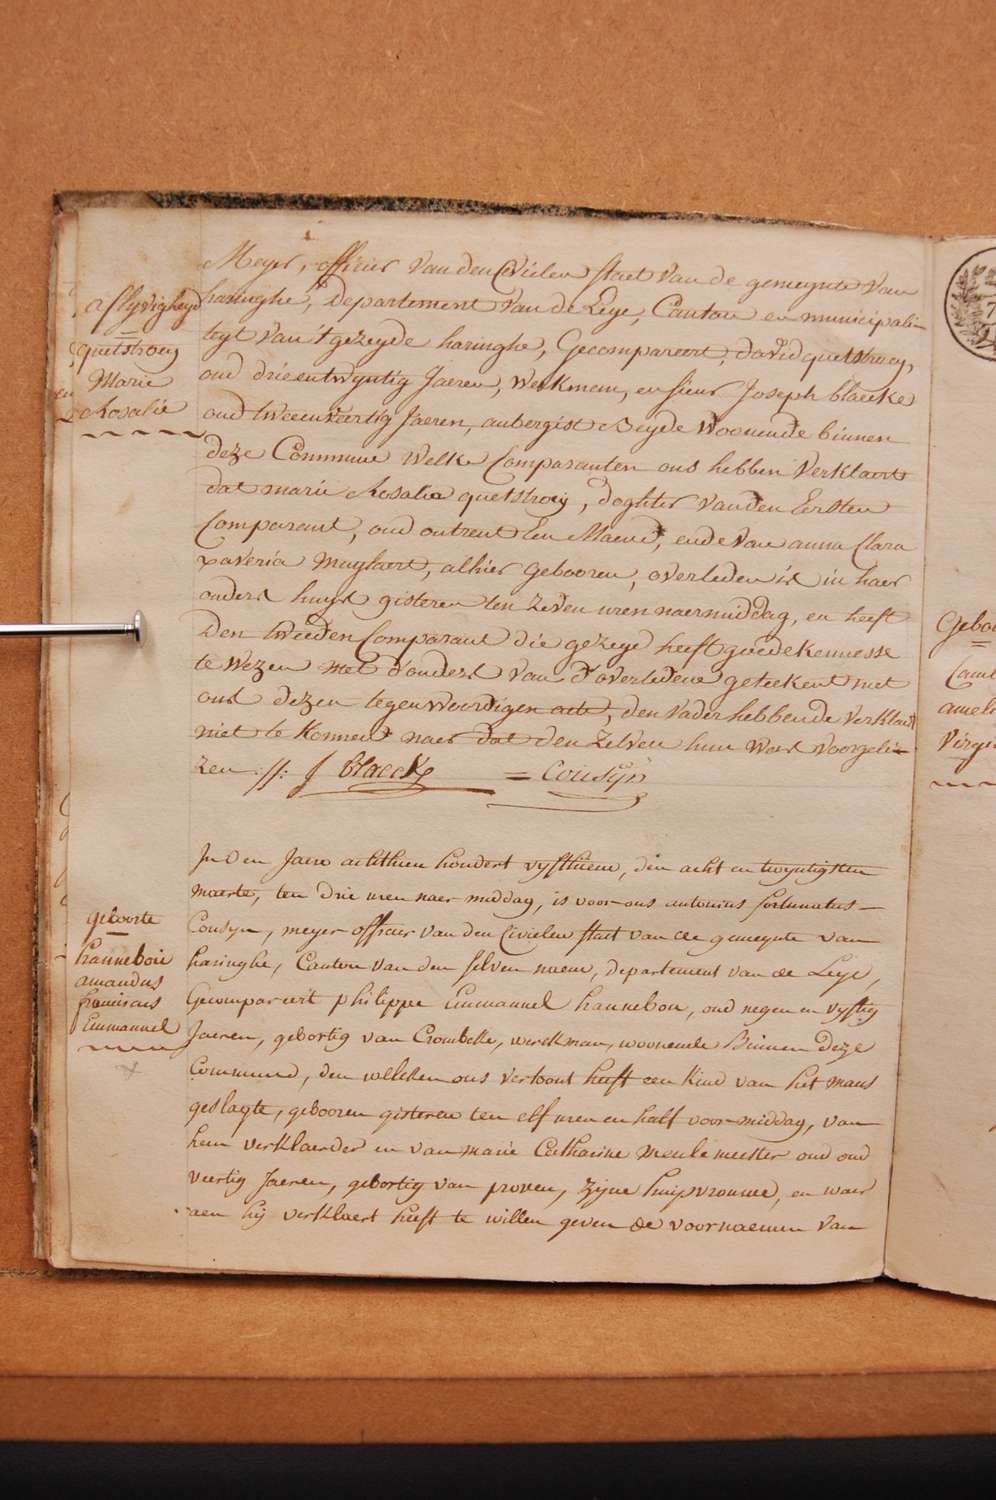 Meyer, officier van den Civielen staet van de gemeynte van
haringhe, Departement van de Leye, Canton en municipali-
teyt van 't gezeyde haringhe, Gecompareert, david quetstroey,
oud drieentwyntig Jaeren, Werkman, en sieur Joseph blaecke
oud tweeenveertig Jaeren, aubergist Beyde Woonende binnen
deze Commune Welke Comparanten ons hebben Verklaert
dat marie Rosalia quetstroey, doghter van den Eersten
Comparant, oud ontrent Een Maend, ende van anna Clara
xaveria Muylaert, alhier Gebooren, overleden is in haer
ouders huys gisteren ten Zeven uren naermiddag, en heeft
Den tweeden Comparant die gezeyd heeft goede kennesse
te Wezen met d'ouders van d'overledene geteekent met
ons dezen tegenwoordigen acte, den vader hebbende verklaert
niet te Konnen naer dat den Zelven hun Was Voorgele-
zen ://: J blaecke = Cousÿn
aflyvigheyd
quetstroey
Marie
Rosalie
In den Jaere achthien hondert vyfthiene, den acht en twyntigsten
maerte, ten Drie uren naer middag, is voor ons antonius fortunatus
Cousyn, meyer officier van den Civielen staet van de gemeynte van
haringhe, Canton van den selven naem, departement van de Leye,
Gecompareert philippe Emmanuel hannebou, oud negen en vyftig
Jaeren, gebortig van Crombeke, werckman, woonende Binnen deze
Commune, den welcken ons vertoont heeft een kind van het mans
geslagte, gebooren gisteren ten elf uren en half voor middag, van
hem verklaerder en van marie Catharine Meulemeester oud oud
veertig Jaeren, gebortig van proven, zyne huysvrouwe, en waer
aen hy verklaert heeft te willen geven de voornaemen van
geboorte
hannebou
amandus
franciscus
Emmanuel
Geboo
Virgin